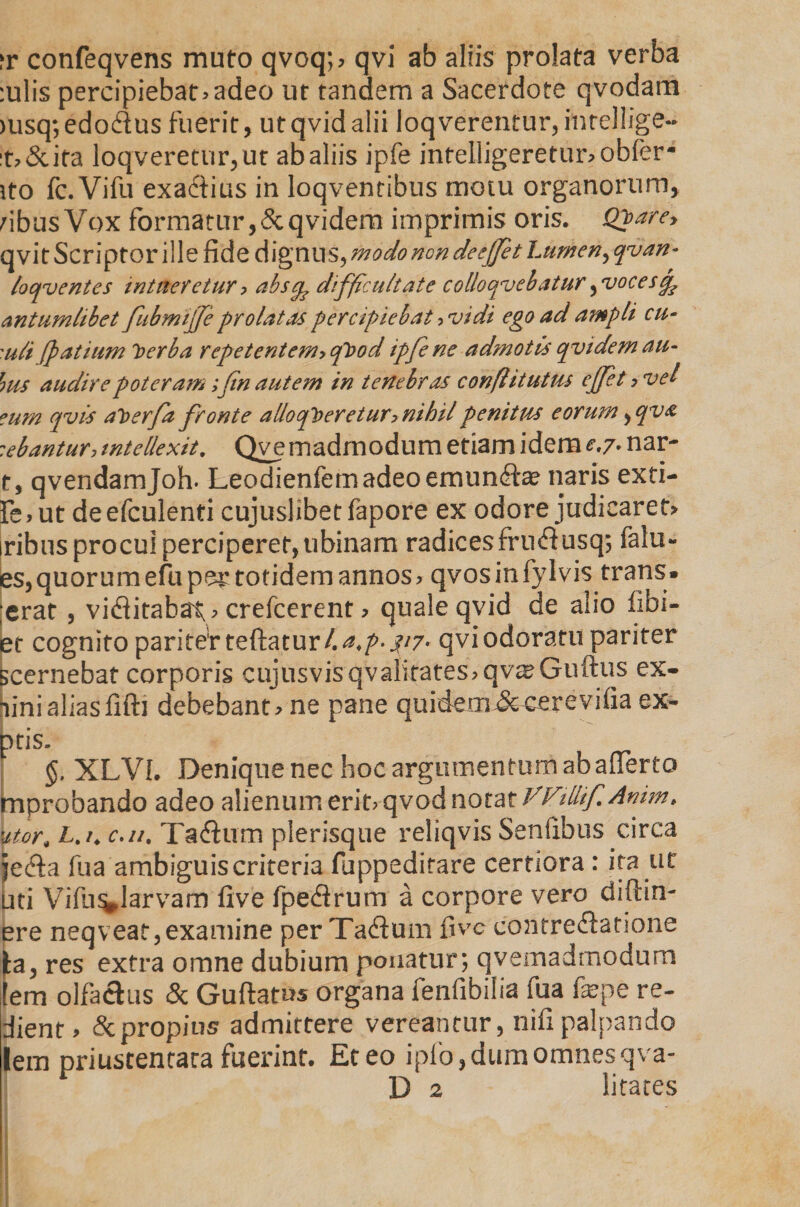 r confeqvens muto qvoq;, qvi ab aliis prolata verba
ulis percipiebat, adeo ut tandem a Sacerdote qvodam
usq; edoctus fuerit, ut qvid alii loqverentur, intellige-
t, & ita loqveretur, ut ab aliis ipſe intelligeretur, obſer-
to ſc. Viſu exactius in loqventibus motu organorum,
ibus Vox formatur, & qvidem imprimis oris. Qvare,
qvit Scriptor ille fide dignus, modo non deeſſet Lumen, qvan-
loqventes intueretur, absq; difficultate colloqvebatur, vocesq;
antumlibet ſubmiſſe prolatas percipiebat, vidi ego ad ampli cu-
uli ſpatium verba repetentem, qvod ipſe ne admotis qvidem au-
bus audire poteram; ſin autem in tenebras conſtitutus eſſet, vel
eum qvis averſa fronte alloqveretur, nihil penitus eorum, qvæ
ebantur, intellexit. Qvemadmodum etiam idem c.7. nar-
t, qvendam Joh. Leodienſem adeo emunctæ naris exti-
ſe, ut de eſculenti cujuslibet ſapore ex odore judicaret,
ribus procul perciperet, ubinam radices fructusq; ſalu-
es, quorum eſu per totidem annos, qvos in ſylvis trans-
erat, victitabat, creſcerent, quale qvid de alio ſibi-
et cognito pariter teſtatur l.a.p. 317. qvi odoratu pariter
ſcernebat corporis cujusvis qvalitates, qvæ Guſtus ex-
ini alias ſiſti debebant, ne pane quidem & cereviſia ex-
ptis.
§. XLVI. Denique nec hoc argumentum ab aſſerto
mprobando adeo alienum erit, qvod notat VVilliſ. Anim.
utor. L.1. c.11. Tactum plerisque reliqvis Senſibus circa
jecta ſua ambiguis criteria ſuppeditare certiora: ita ut
uti Viſus, larvam ſive ſpectrum à corpore vero diſtin-
ere neqveat, examine per Tactum ſive contrectatione
ta, res extra omne dubium ponatur; qvemadmodum
dem olfactus & Guſtatus organa ſenſibilia ſua ſæpe re-
dient, & propius admittere vereantur, niſi palpando
dem prius tentata fuerint. Et eo ipſo, dum omnes qva-
D 2 litates